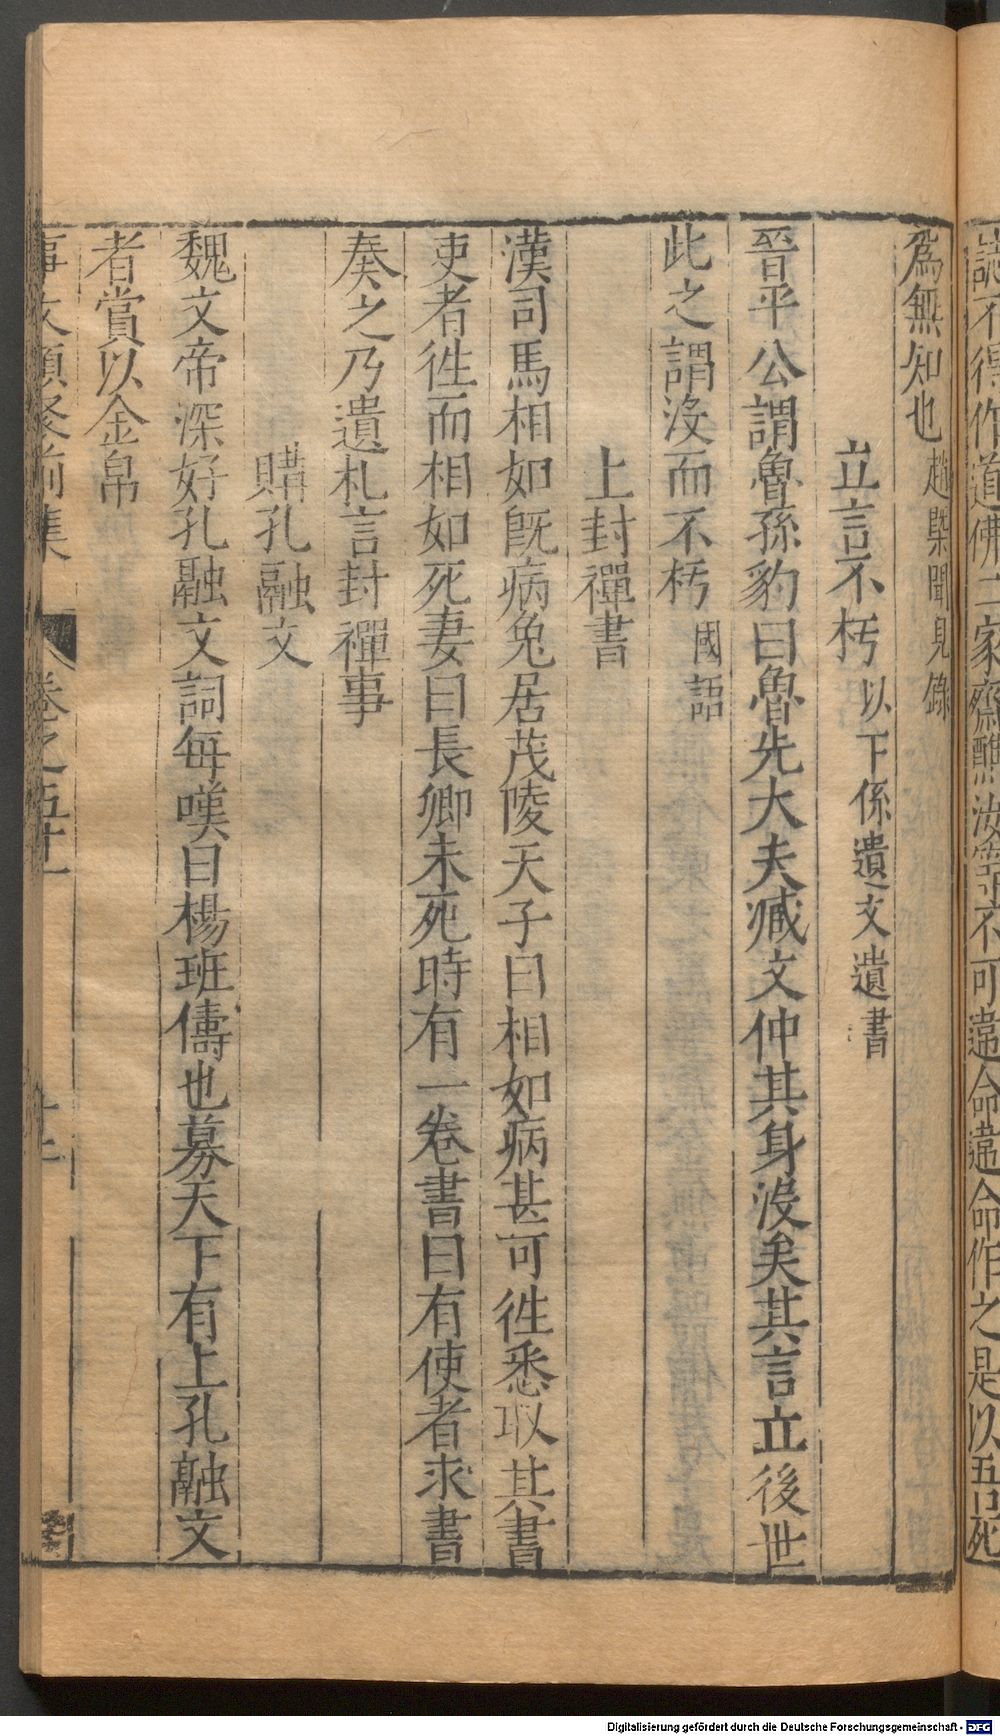 誌不得作道佛二家齋醮汝等不可違命違命作之是以吾死
爲無知也 趙槩聞見錄
立言不朽 以下係遺文遺書
晉平公謂魯孫豹曰魯先大夫臧文仲其身沒矣其言立後世
此之謂沒而不朽 國語
上封禪書
漢司馬相如旣病免居茂陵天子曰相如病甚可徃悉取其書
吏者徃而相如死妻曰長卿未死時有一卷書曰有使者求書
奏之乃遺札言封禪事
購孔融文
魏文帝深好孔融文詞每嘆曰楊班儔也募天下有上孔融文
者賞以金帛
事文類聚前集 卷之五十一
Digitalisierung gefördert durch die Deutsche Forschungsgemeinschaft - DFG